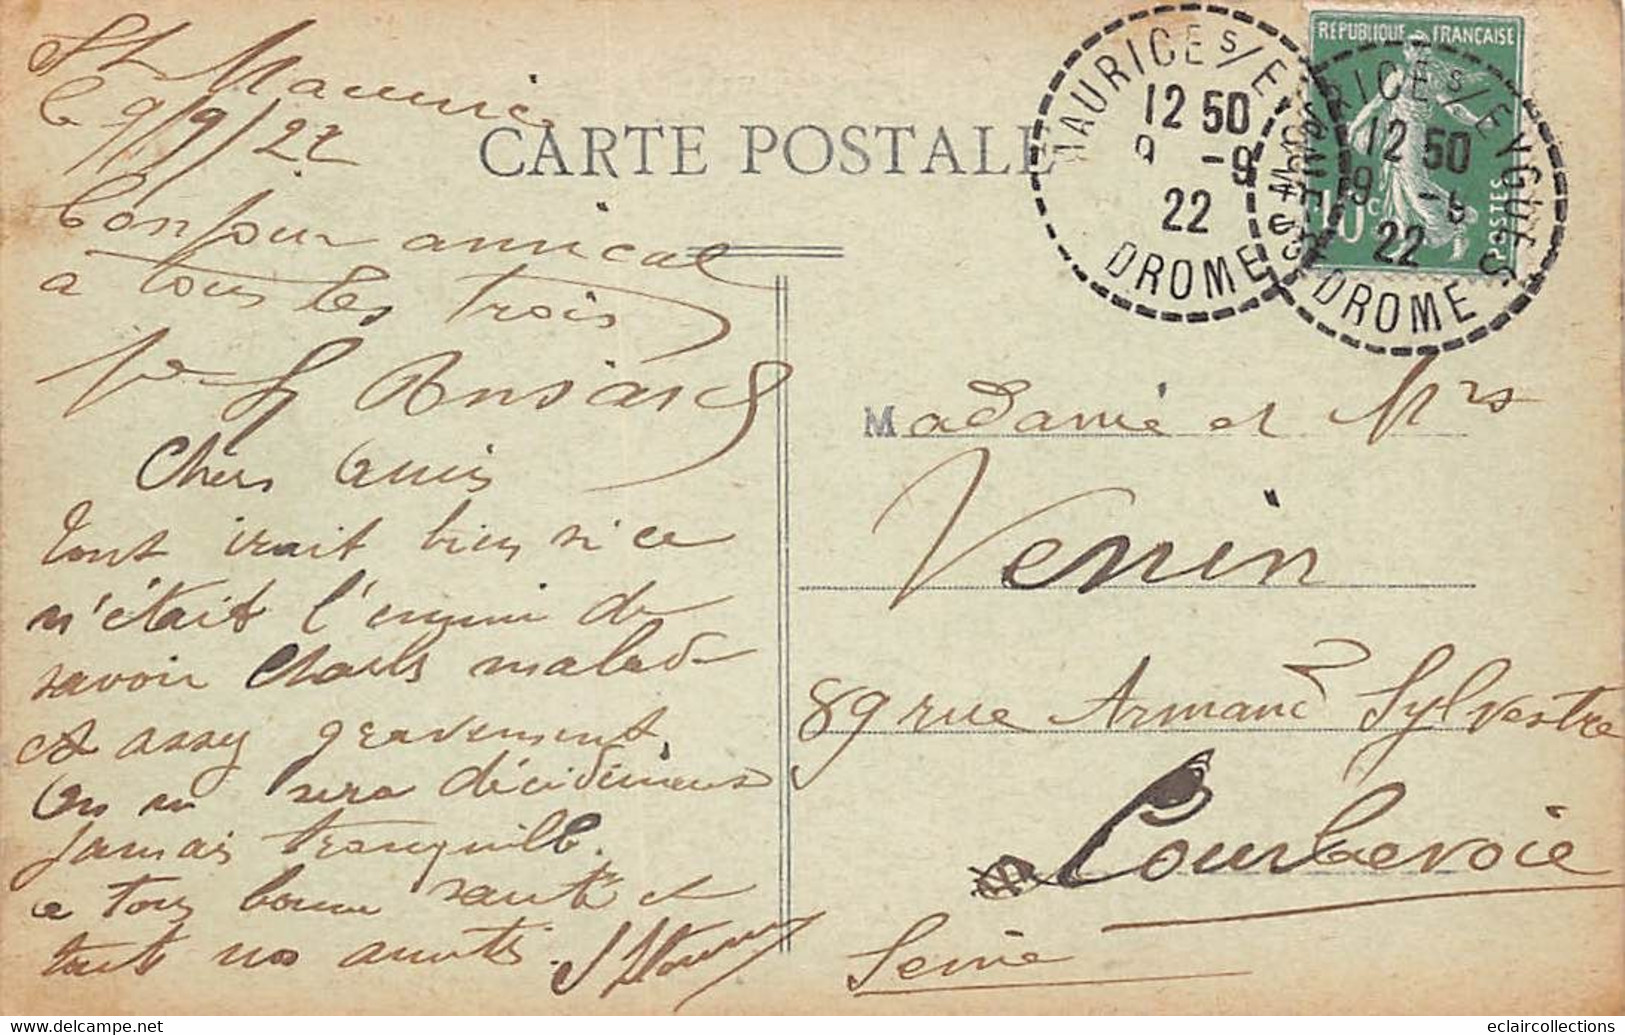 St Maurice
le 9/9/22
CARTE POSTALE
Bonjour amical
a tous les trois
Ve
Chers Amis
Tout irait bien si ce
n'était l'ennui de
savoir Charles malade
et assez gravement.
On ne sera décidément
jamais tranquille.
a tous bonne santé et
tout nos amitiés.
MAURICE S/ EYGUES
12 50
9 -9
22
DROME
REPUBLIQUE FRANÇAISE
10c
POSTES
MAURICE S/ EYGUES
12 50
9 -9
22
DROME
Madame et Mrs
Venin
89 rue Armand Sylvestre
Courbevoie
Seine
eclaircollections